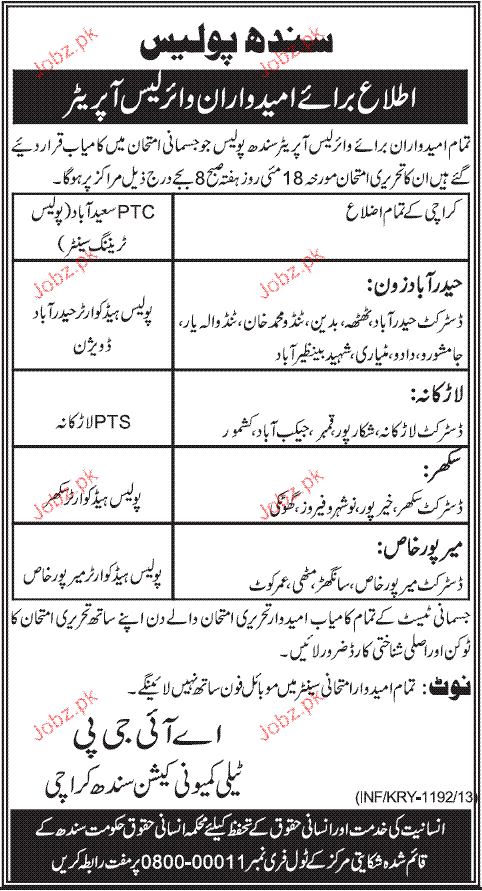 سندھ پولیس
اطلاع برائے امیدواران وائرلیس آپریٹر
تمام امیدواران برائے وائرلیس آپریٹر سندھ پولیس جو جسمانی امتحان میں کامیاب قرار دیئے
گئے ہیں ان کا تحریری امتحان مورخہ 18 مئی روز ہفتہ صبح 8 بجے درج ذیل مراکز پر ہوگا۔
کراچی کے تمام اضلاع
PTC سعید آباد (پولیس
ٹریننگ سینٹر)
حیدرآباد زون:
ڈسٹرکٹ حیدرآباد، ٹھٹھہ، بدین، ٹنڈو محمد خان، ٹنڈوالہ یار،
جامشورو، دادو، مٹیاری، شہید بینظیر آباد
پولیس ہیڈ کوارٹر حیدرآباد
ڈویژن
لاڑکانہ:
ڈسٹرکٹ لاڑکانہ، شکارپور، قمبر، جیکب آباد، کشمور
PTS لاڑکانہ
سکھر:
ڈسٹرکٹ سکھر، خیرپور، نوشہرو فیروز، گھوٹکی
پولیس ہیڈ کوارٹر سکھر
میرپورخاص:
ڈسٹرکٹ میرپورخاص، سانگھڑ، مٹھی، عمرکوٹ
پولیس ہیڈ کوارٹر میرپورخاص
جسمانی ٹیسٹ کے تمام کامیاب امیدوار تحریری امتحان والے دن اپنے ساتھ تحریری امتحان کا
ٹوکن اور اصلی شناختی کارڈ ضرور لائیں۔
نوٹ: تمام امیدوار امتحانی سینٹر میں موبائل فون ساتھ نہیں لائینگے۔
اے آئی جی پی
ٹیلی کمیونی کیشن سندھ کراچی
(INF/KRY-1192/13)
انسانیت کی خدمت اور انسانی حقوق کے تحفظ کیلئے محکمہ انسانی حقوق حکومت سندھ کے
قائم شدہ شکایتی مرکز کے ٹول فری نمبر 00011-0800 پر مفت رابطہ کریں
Jobz.pk
Jobz.pk
Jobz.pk
Jobz.pk
Jobz.pk
Jobz.pk
Jobz.pk
Jobz.pk
Jobz.pk
Jobz.pk